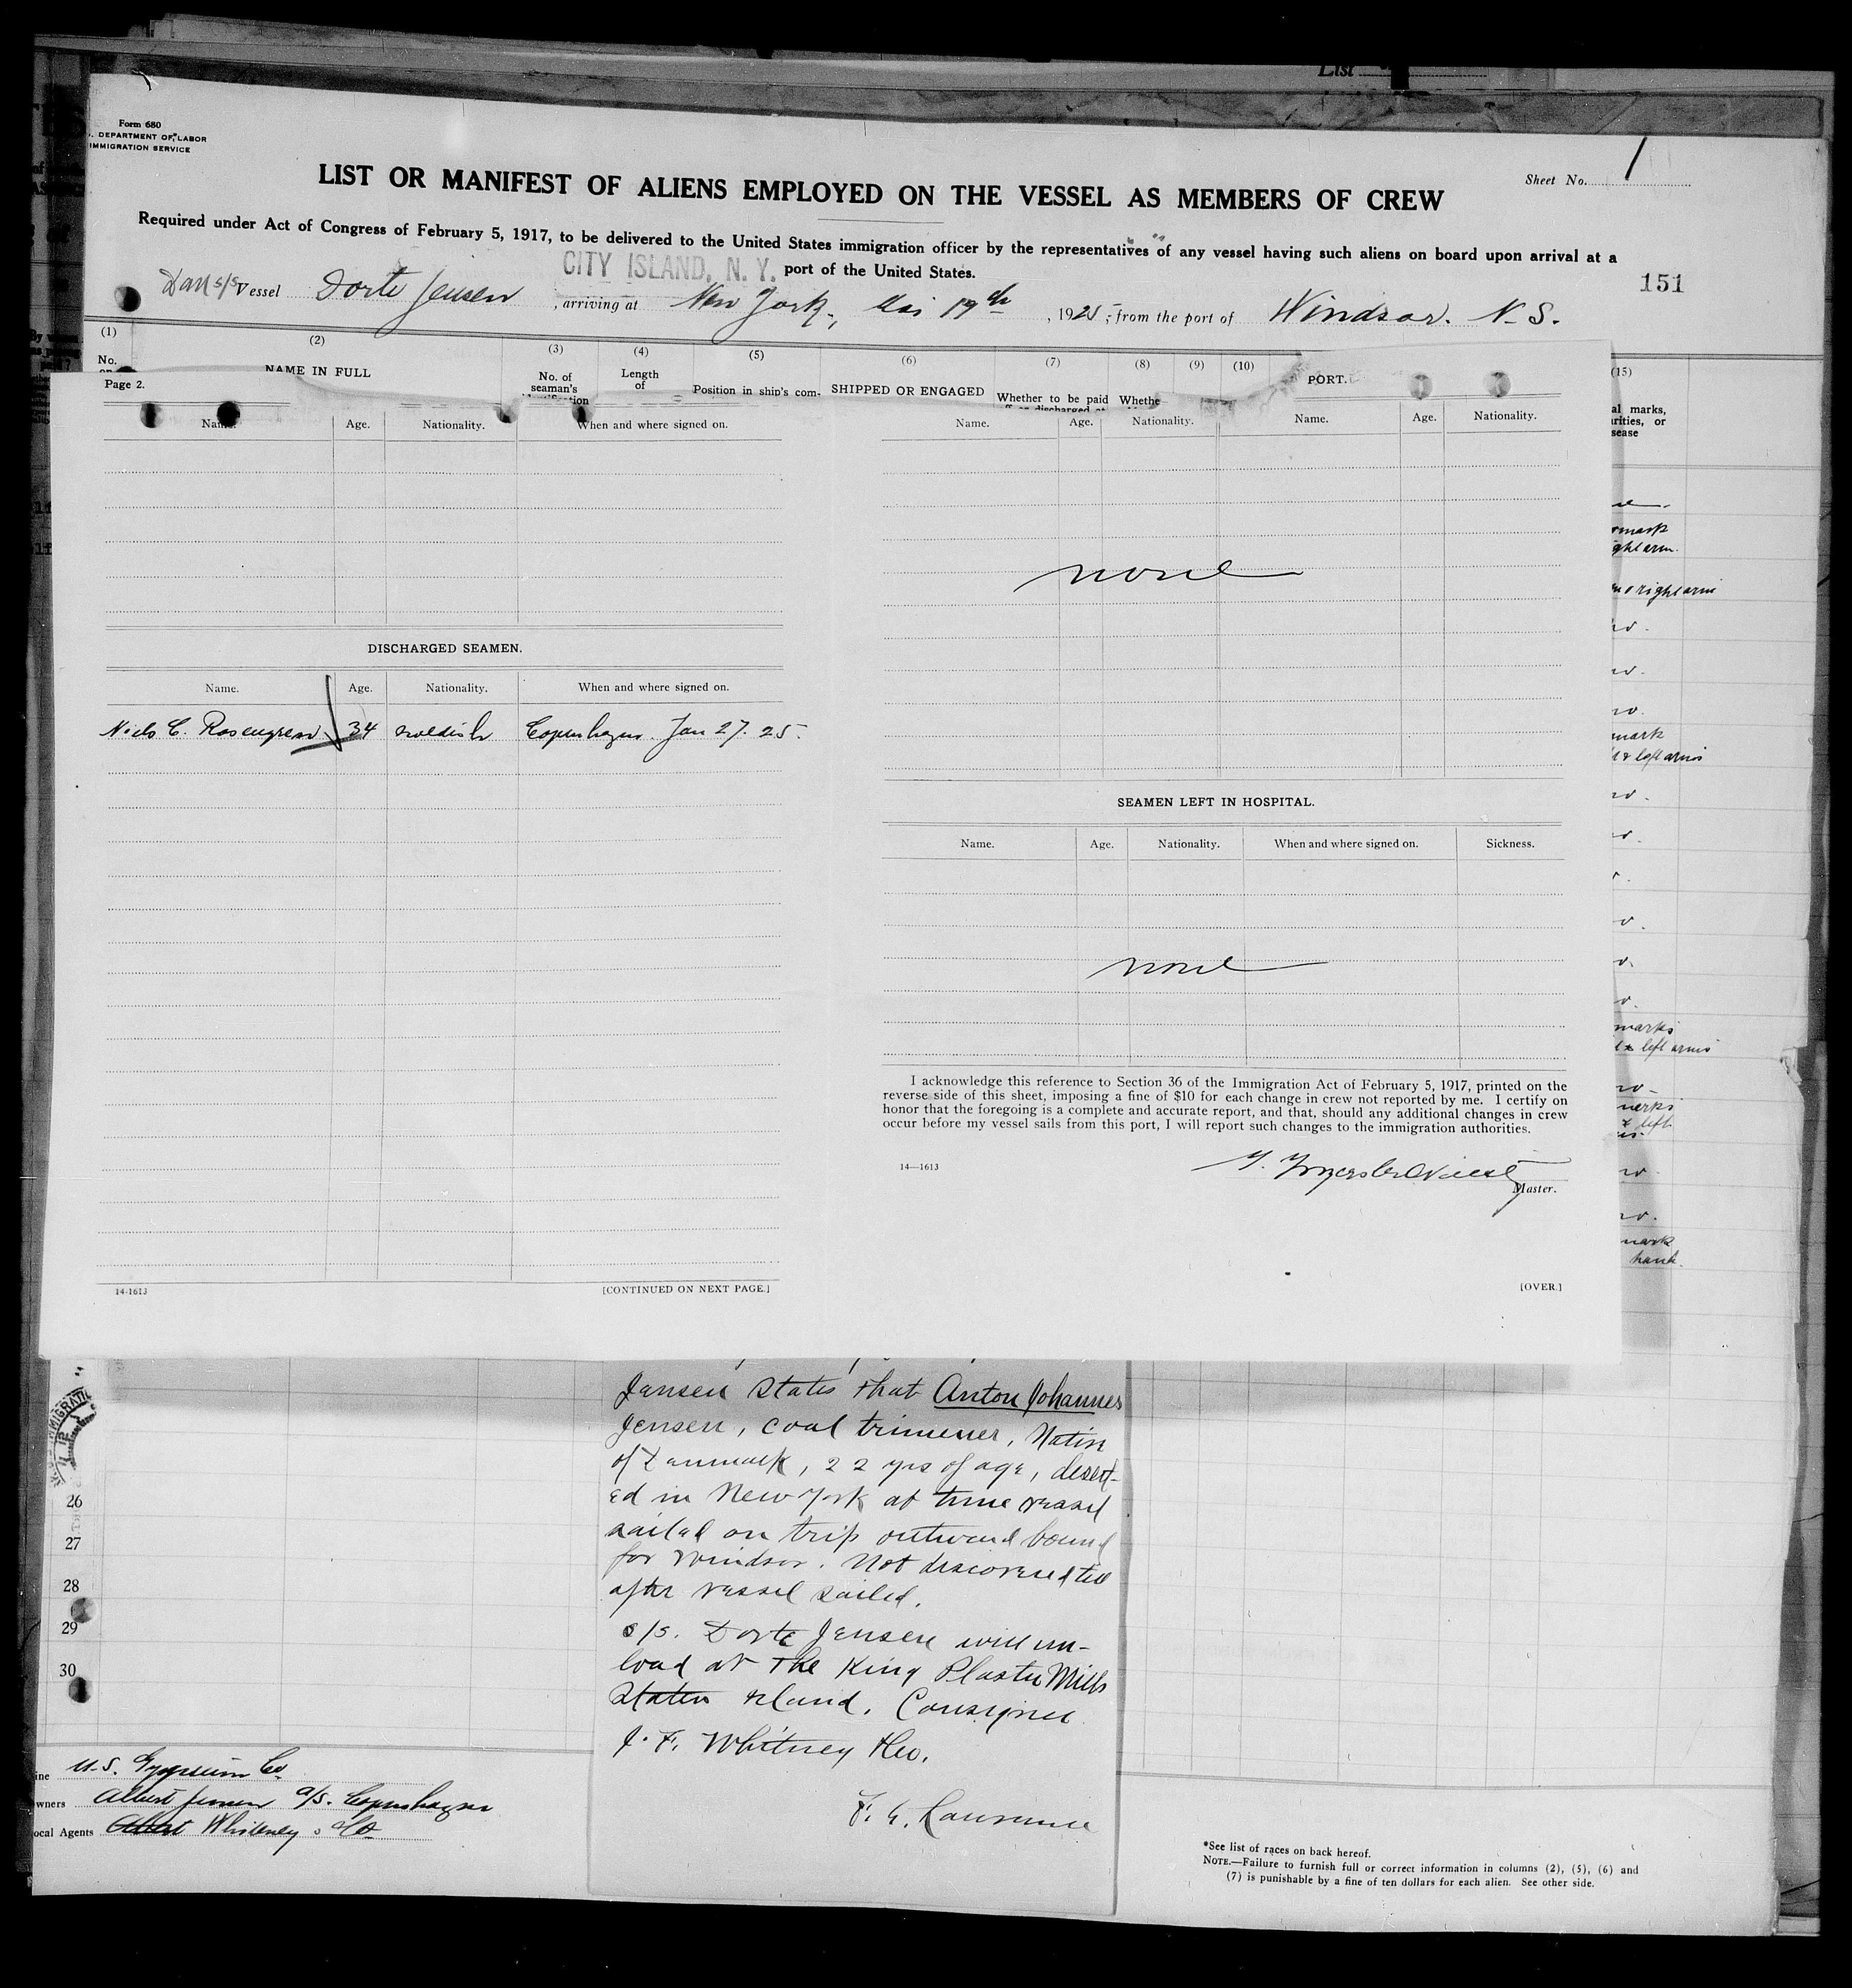 List
Form 680
. DEPARTMENT OF LABOR
IMMIGRATION SERVICE
Sheet No. 1
LIST OR MANIFEST OF ALIENS EMPLOYED ON THE VESSEL AS MEMBERS OF CREW
Required under Act of Congress of February 5, 1917, to be delivered to the United States immigration officer by the representatives of any vessel having such aliens on board upon arrival at a
port of the United States.
CITY ISLAND, N. Y.
151
Dan s/s Vessel Dorte Jensen, arriving at New York, Mai 19th, 1925; from the port of Windsor. N.S.
(1) (2) (3) (4) (5) (6) (7) (8) (9) (10) (15)
No. NAME IN FULL No. of seaman's Length of Position in ship's com- SHIPPED OR ENGAGED Whether to be paid Whethe
al marks,
rities, or
sease
Page 2.
PORT.
Name. Age. Nationality. When and where signed on.
Name. Age. Nationality. Name. Age. Nationality.
none
DISCHARGED SEAMEN.
Name. Age. Nationality. When and where signed on.
Niels C. Rosengren 34 swedish Copenhagen. Jan 27. 25.
14-1613 [CONTINUED ON NEXT PAGE.]
SEAMEN LEFT IN HOSPITAL.
Name. Age. Nationality. When and where signed on. Sickness.
none
I acknowledge this reference to Section 36 of the Immigration Act of February 5, 1917, printed on the
reverse side of this sheet, imposing a fine of $10 for each change in crew not reported by me. I certify on
honor that the foregoing is a complete and accurate report, and that, should any additional changes in crew
occur before my vessel sails from this port, I will report such changes to the immigration authorities.
14—1613
Master.
[OVER.]
mark
ght arm.
right arm
mark
t & left arms
marks
left arms
marks
& left
mark
hand.
Jensen states that Anton Johannes
Jensen, coal trimmer, Native
of Denmark, 22 yrs of age, desert-
ed in New York at time vessel
sailed on trip outward bound
for Windsor. Not discovered till
after vessel sailed.
s/s. Dorte Jensen will un-
load at The King Plaster Mills
Staten Island. Consignee
J. F. Whitney & Co.
F. G. Lawrence
26
27
28
29
30
ine U.S. Gypsum Co.
wners Albert Jensen a/s. Copenhagen
ocal Agents Whiteney & Co
*See list of races on back hereof.
NOTE.—Failure to furnish full or correct information in columns (2), (5), (6) and
(7) is punishable by a fine of ten dollars for each alien. See other side.